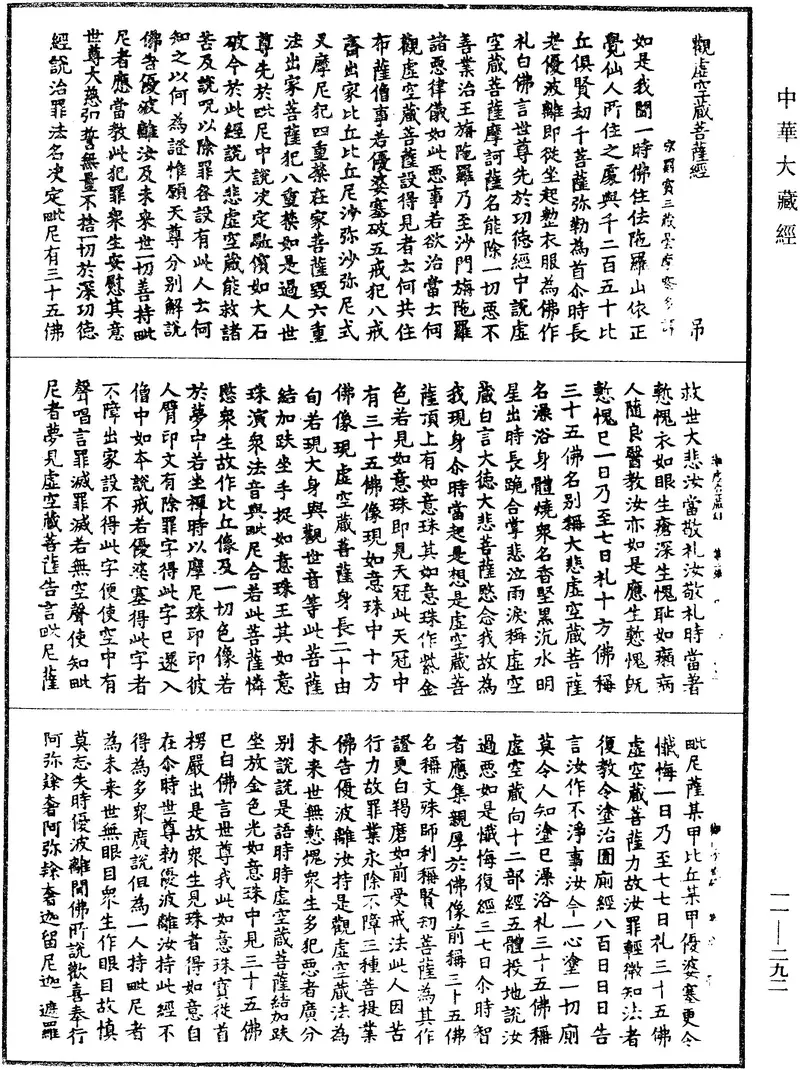 中華大藏經
觀虛空藏菩薩經
宋罽賓三藏曇摩蜜多譯
吊
如是我聞一時佛住佉陁羅山依正
覺仙人所住之處與千二百五十比
丘俱賢劫千菩薩弥勒為首尒時長
老優波離即從坐起整衣服為佛作
礼白佛言世尊先於功德經中說虛
空藏菩薩摩訶薩名能除一切惡不
善業治王旃陁羅乃至沙門旃陁羅
諸惡律儀如此惡事若欲治當云何
觀虛空藏菩薩設得見者云何共住
布薩僧事若優婆塞破五戒犯八戒
齋出家比丘比丘尼沙弥沙弥尼式
叉摩尼犯四重禁在家菩薩毀六重
法出家菩薩犯八重禁如是過人世
尊先於毗尼中說决定駈儐如大石
破今於此經說大悲虛空藏能救諸
苦及說呪以除罪咎設有此人云何
知之以何為證惟願天尊分別解說
佛告優波離汝及未來世一切善持毗
尼者應當教此犯罪衆生安慰其意
世尊大慈弘誓無量不捨一切於深功德
經說治罪法名决定毗尼有三十五佛
救世大悲汝當敬礼汝敬礼時當著
慙愧衣如眼生瘡深生愧耻如癩病
人随良醫教汝亦如是應生慙愧旣
慙愧已一日乃至七日礼十方佛稱
三十五佛名別稱大悲虛空藏菩薩
名澡浴身體燒衆名香堅黑沉水明
星出時長跪合掌悲泣雨淚稱虛空
藏白言大徳大悲菩薩愍念我故為
我現身尒時當起是想是虛空藏菩
薩頂上有如意珠其如意珠作紫金
色若見如意珠即見天冠此天冠中
有三十五佛像現如意珠中十方
佛像現虛空藏菩薩身長二十由
旬若現大身與觀世音等此菩薩
結加趺坐手捉如意珠王其如意
珠演衆法音與毗尼合若此菩薩憐
愍衆生故作比丘像及一切色像若
於夢中若坐禪時以摩尼珠印印彼
人臂印文有除罪字得此字已還入
僧中如本說戒若優婆塞得此字者
不障出家設不得此字便使空中有
聲唱言罪滅罪滅若無空聲使知毗
尼者夢見虛空藏菩薩告言毗尼薩
毗尼薩某甲比丘某甲優婆塞更令
懺悔一日乃至七七日礼三十五佛
虛空藏菩薩力故汝罪輕微知法者
復教令塗治圊廁經八百日日日告
言汝作不淨事汝今一心塗一切廁
莫令人知塗已澡浴礼三十五佛稱
虛空藏向十二部經五體投地說汝
過惡如是懺悔復經三七日尒時智
者應集親厚於佛像前稱三十五佛
名稱文殊師利稱賢劫菩薩為其作
證更白羯磨如前受戒法此人因苦
行力故罪業永除不障三種菩提業
佛告優波離汝持是觀虛空藏法為
未來世無慙愧衆生多犯惡者廣分
別說說是語時時虛空藏菩薩結加趺
坐放金色光如意珠中見三十五佛
已白佛言世尊我此如意珠寶從首
楞嚴出是故衆生見珠者得如意自
在尒時世尊勅優波離汝持此經不
得為多衆廣說但為一人持毗尼者
為未來世無眼目衆生作眼目故慎
莫忘失時優波離聞佛所說歡喜奉行
阿弥嗱奢阿弥嗱奢迦留尼迦遮羅
一一—二九二